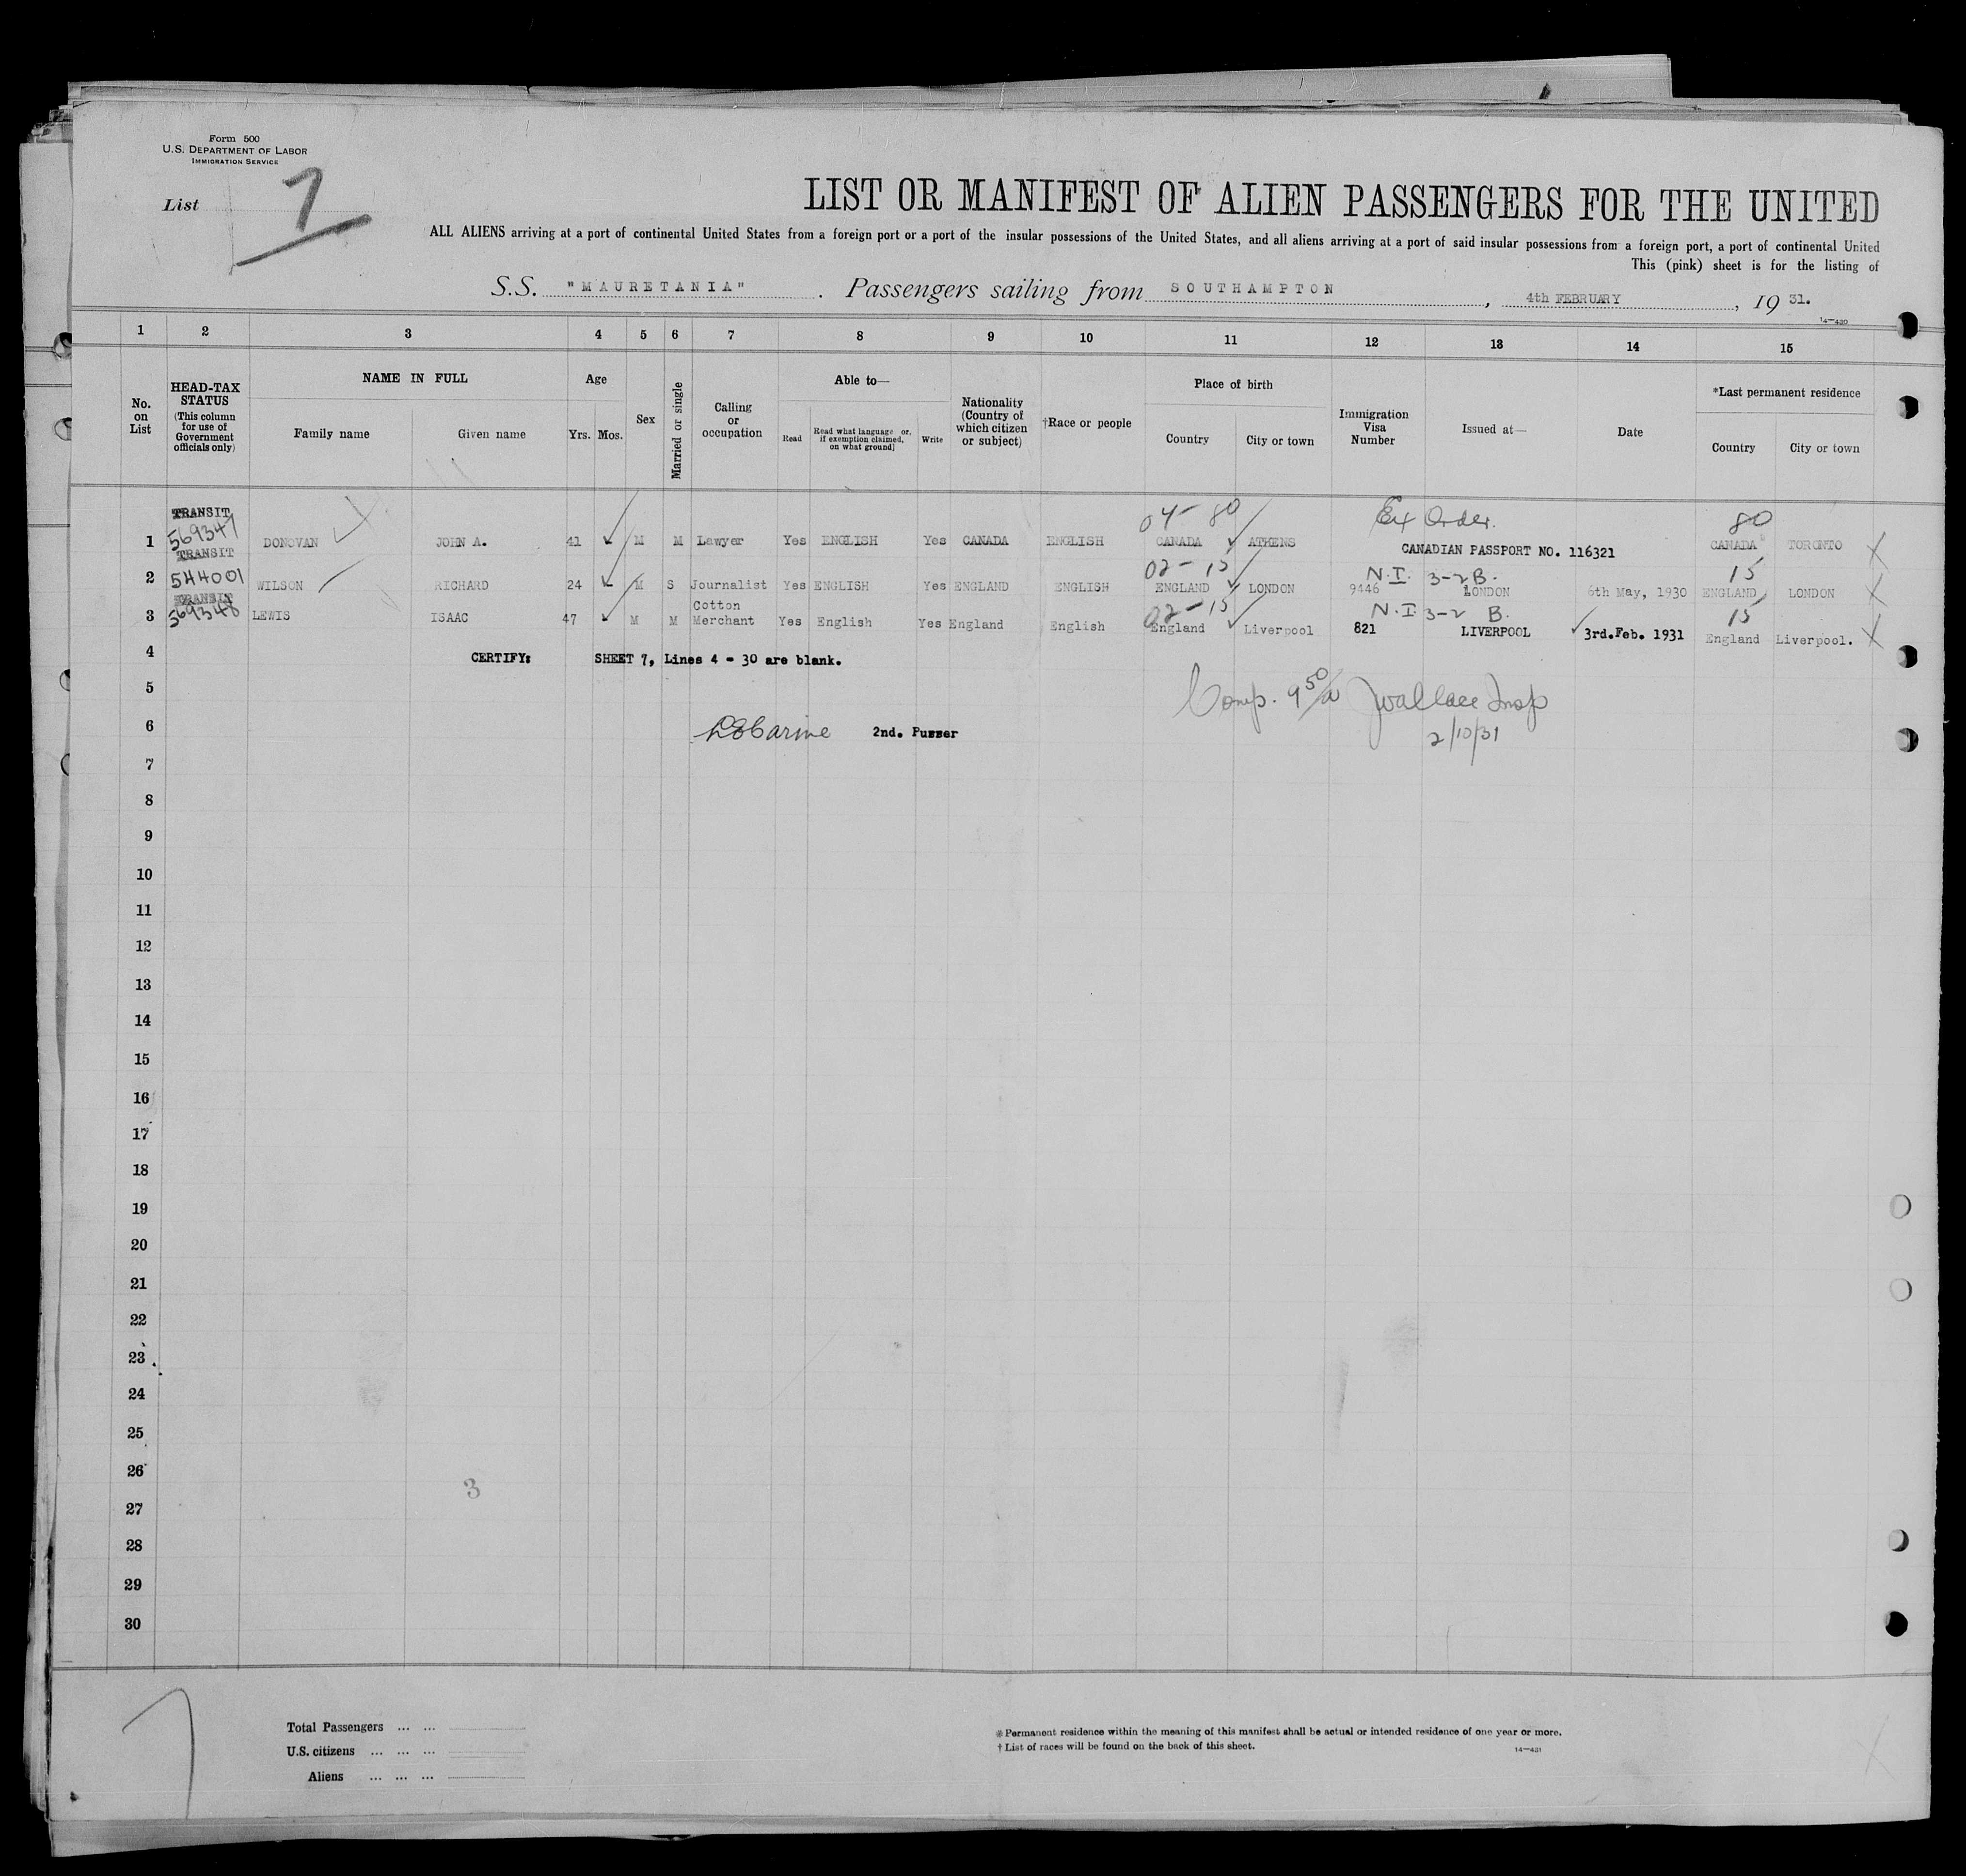 Form 500
U.S. DEPARTMENT OF LABOR
IMMIGRATION SERVICE
List 7
LIST OR MANIFEST OF ALIEN PASSENGERS FOR THE UNITED
ALL ALIENS arriving at a port of continental United States from a foreign port or a port of the insular possessions of the United States, and all aliens arriving at a port of said insular possessions from a foreign port, a port of continental United
This (pink) sheet is for the listing of
S.S. "MAURETANIA". Passengers sailing from SOUTHAMPTON, 4th FEBRUARY, 19 31.
14—430
1 2 3 4 5 6 7 8 9 10 11 12 13 14 15
No. on List
HEAD-TAX STATUS (This column for use of Government officials only)
NAME IN FULL
Family name Given name
Age
Yrs. Mos.
Sex
Married or single
Calling or occupation
Able to—
Read
Read what language or, if exemption claimed, on what ground]
Write
Nationality (Country of which citizen or subject)
†Race or people
Place of birth
Country City or town
Immigration Visa Number
Issued at—
Date
*Last permanent residence
Country City or town
TRANSIT 04- 80 Ex Order. 80
569347
1 DONOVAN JOHN A. 41 M M Lawyer Yes ENGLISH Yes CANADA ENGLISH CANADA ATHENS CANADIAN PASSPORT NO. 116321 CANADA TORONTO
TRANSIT 02-15 N.I. 3-2B. 15
544001
2 WILSON RICHARD 24 M S Journalist Yes ENGLISH Yes ENGLAND ENGLISH ENGLAND LONDON 9446 LONDON 6th May, 1930 ENGLAND LONDON
TRANSIT 02-15 N.I 3-2 B. 15
569348
3 LEWIS ISAAC 47 M M Cotton Merchant Yes English Yes England English England Liverpool 821 LIVERPOOL 3rd.Feb. 1931 England Liverpool.
4 CERTIFY: SHEET 7, Lines 4 - 30 are blank.
5 Comp. 9 50/a J Wallace Insp
6 2nd. Purser 2/10/31
7
8
9
10
11
12
13
14
15
16
17
18
19
20
21
22
23
24
25
26
3
27
28
29
30
7
Total Passengers ... ...
U.S. citizens ... ... ...
Aliens ... ... ...
* Permanent residence within the meaning of this manifest shall be actual or intended residence of one year or more.
† List of races will be found on the back of this sheet.
14—431